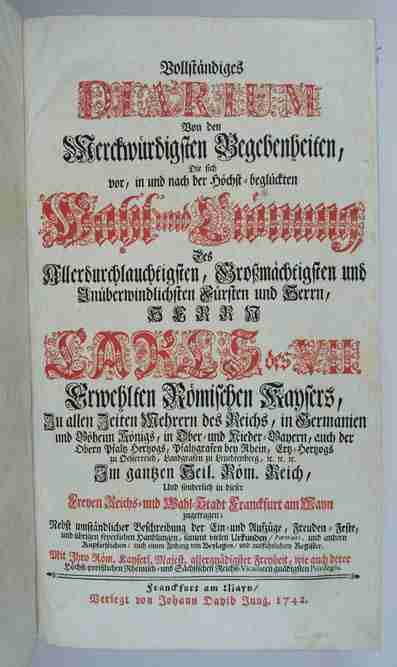 Vollständiges
DIARIUM
Von den
Merckwürdigsten Begebenheiten,
Die sich
vor, in und nach der Höchst-beglückten
Wahl und Crönung
Des
Allerdurchlauchtigsten, Großmächtigsten und
Unüberwindlichsten Fürsten und Herrn,
HERRN
CARLS des VII
Erwehlten Römischen Kaysers,
Zu allen Zeiten Mehrern des Reichs, in Germanien
und Böheim Königs, in Ober- und Nieder-Bayern, auch der
Obern Pfaltz Hertzogs, Pfaltzgrafen bey Rhein, Ertz-Hertzogs
zu Oesterreich, Landgrafen zu Leuchtenberg, ꝛc. ꝛc. ꝛc.
Im gantzen Heil. Röm. Reich,
Und sonderlich in dieser
Freyen Reichs- und Wahl-Stadt Franckfurt am Mayn
zugetragen;
Nebst umständlicher Beschreibung der Ein- und Aufzüge, Freuden-Feste,
und übrigen feyerlichen Handlungen, sammt vielen Urkunden, Portraits, und andern
Kupferstichen; auch einem Anhang von Beylagen, und ausführlichen Register.
Mit Ihro Röm. Kayserl. Majest. allergnädigster Freyheit, wie auch derer
Höchst-preißlichen Rheinisch- und Sächsischen Reichs-Vicariaten gnädigsten Privilegiis.
Franckfurt am Mayn/
Verlegt von Johann David Jung. 1742.